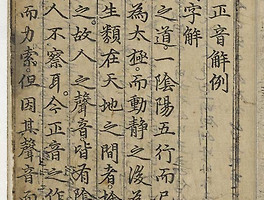 正音解例
字解
之道。一陰陽五行而已
為太極而動靜之後為
生類在天地之間者捨
之故人之聲音皆有陰
人不察耳。今正音之作
而力索但因其聲音而